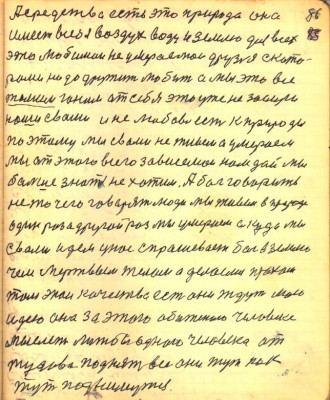 А средства есть это природа она 86
имеет в себя воздух воду и землю для всех
это любимои не умераемои друзья с кото-
рыми надо дружит любит а мы это все
гоним от себя это уже не
наши свами и не любовь ест к природы
поэтому мы свами не живем а умераем
мы от этого всего зависемои нам дай мы
больше знать не хотим. А бог говорить
не то чего говорят люди мы живем в природе
один раз а другой раз мы умераем а куда мы
свами идем у нас спрашевает бог в землю
чем мертвым телом а делоеми прахом
такои качества ест они ждут мою
идею она за этого обиженого человека
мыслет хотя бы одного человека от
туда поднят все они тут как
тут подымутся.